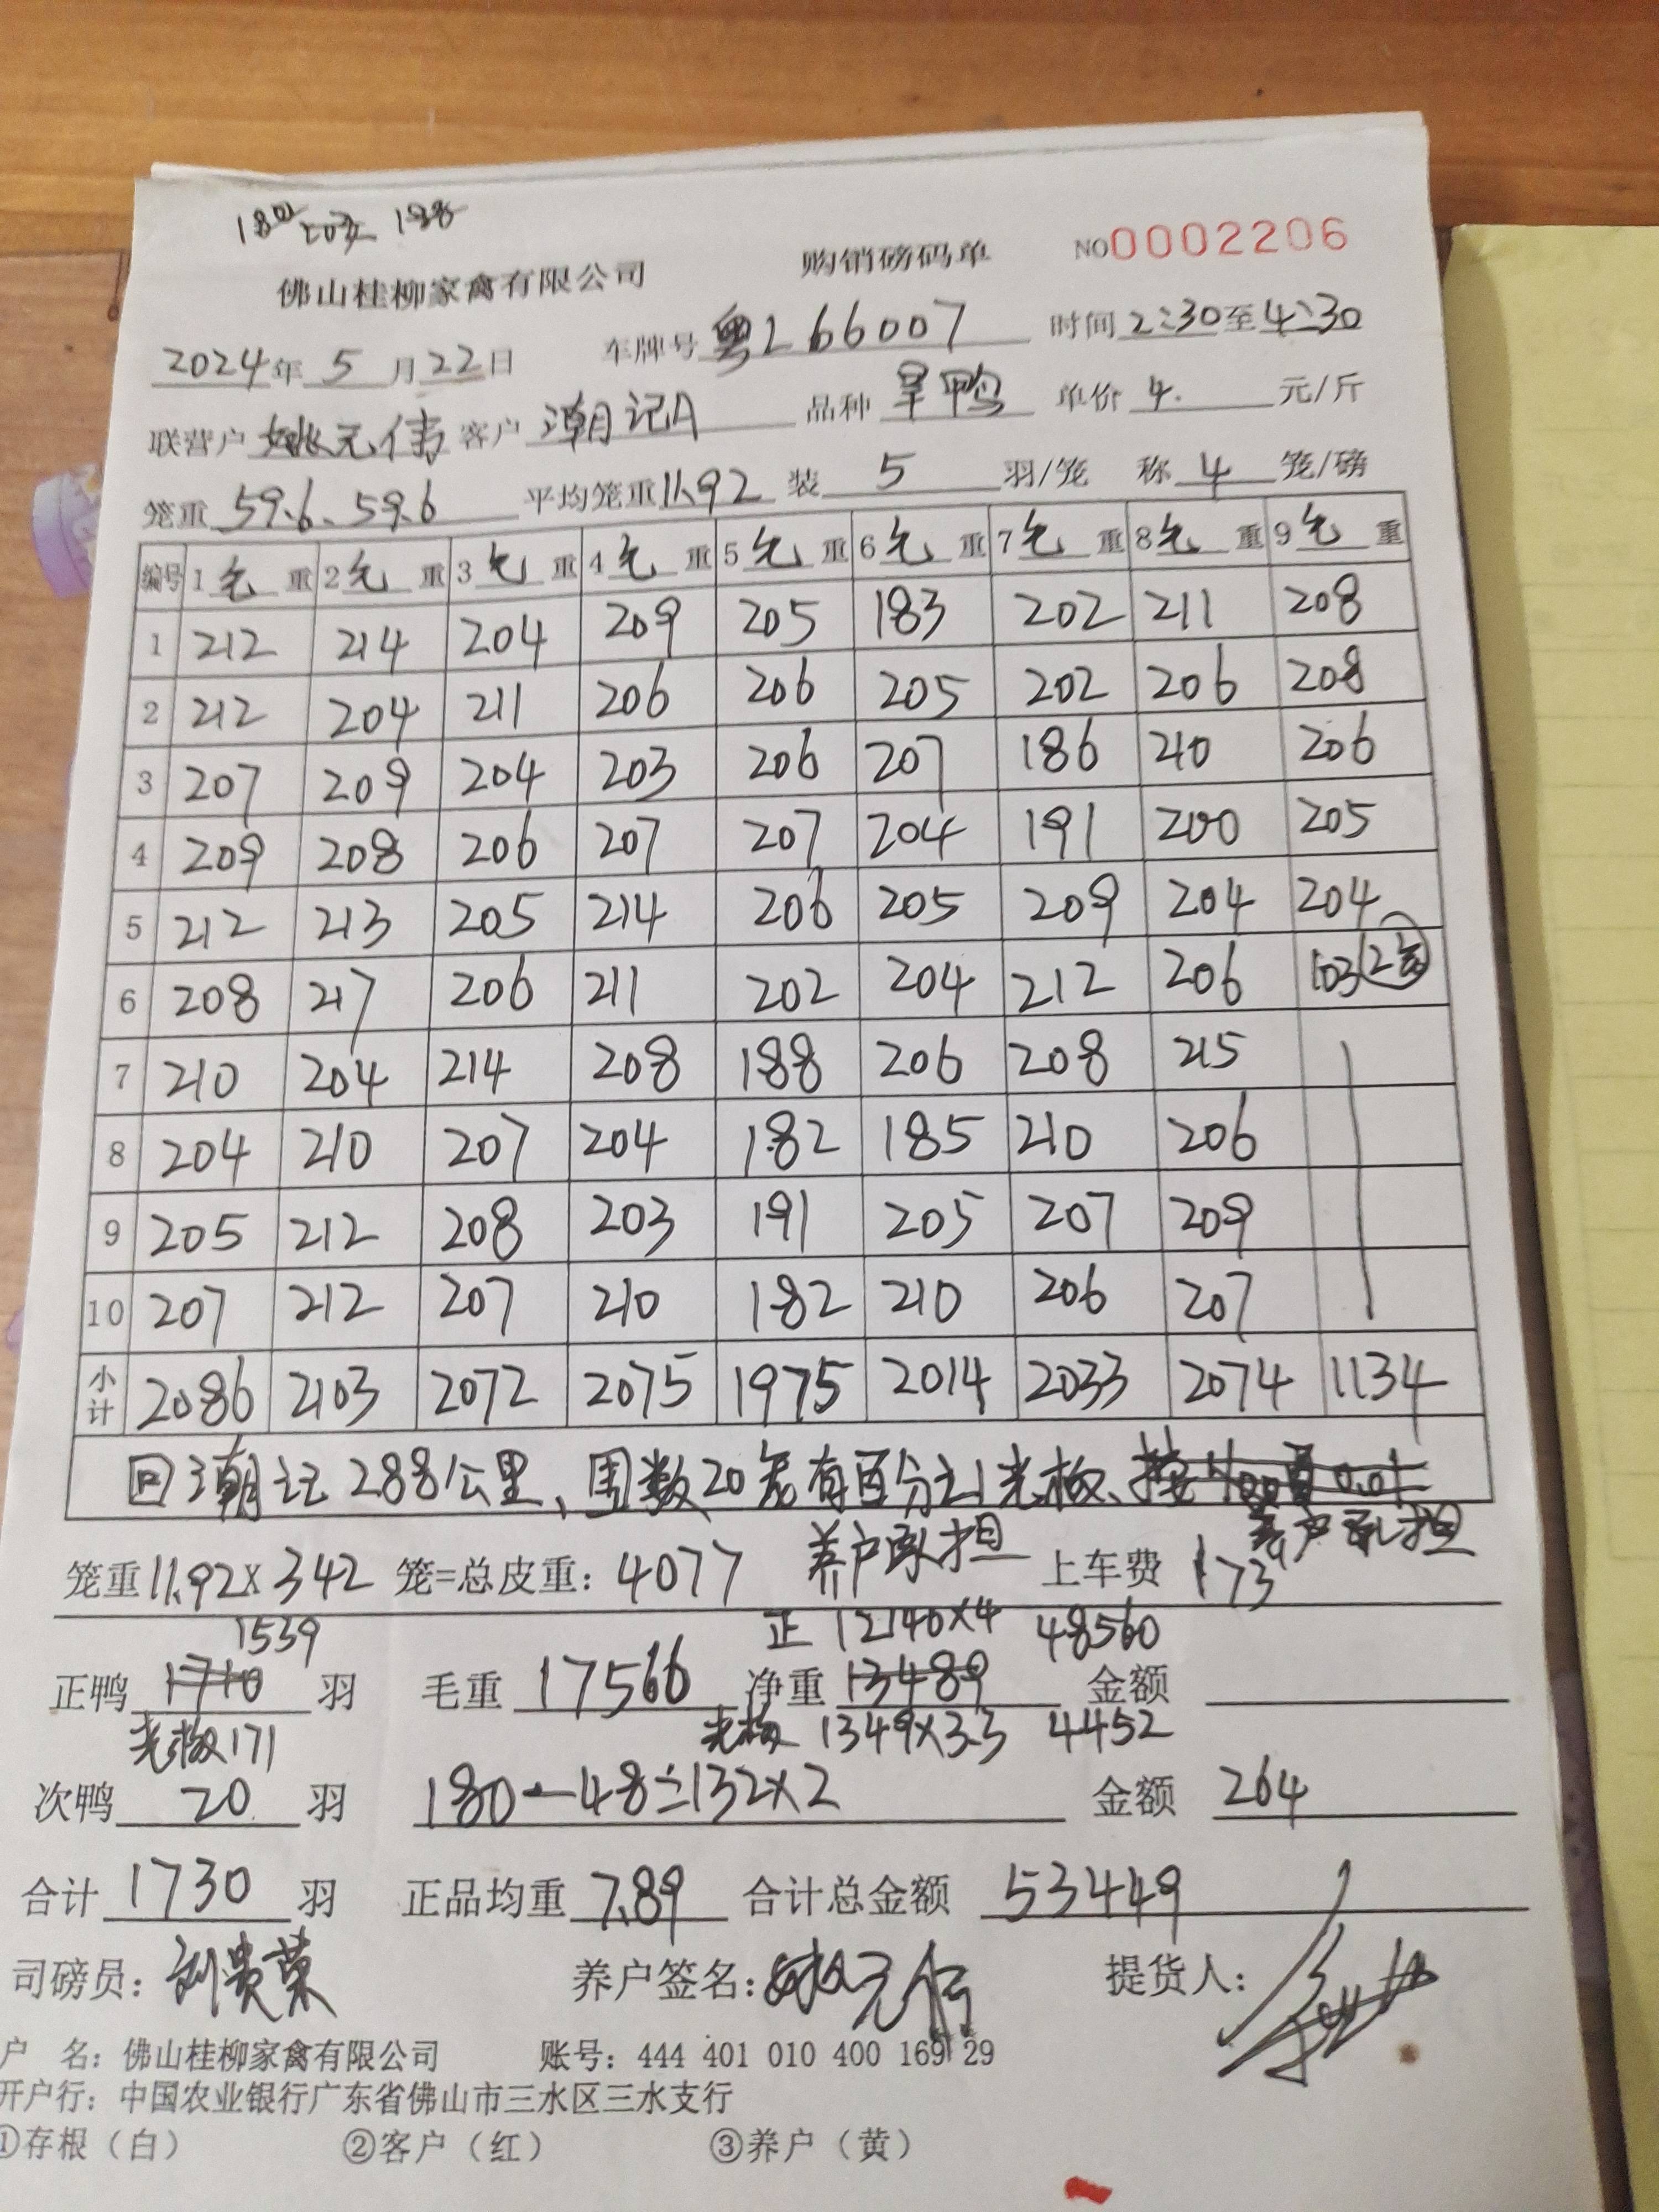 180 203 188
佛山桂柳家禽有限公司 购销磅码单 NO0002206
2024年5月22日 车牌号 粤L66007 时间 2:30至4:30
联营户 姚元伟 客户 潮记A 品种 旱鸭 单价 4. 元/斤
笼重 59.6、59.6 平均笼重 11.92 装 5 羽/笼 称 4 笼/磅
编号 1 毛 重 2 毛 重 3 毛 重 4 毛 重 5 毛 重 6 毛 重 7 毛 重 8 毛 重 9 毛 重
1 212 214 204 209 205 183 202 211 208
2 212 204 211 206 206 205 202 206 208
3 207 209 204 203 206 207 186 210 206
4 209 208 206 207 207 204 191 200 205
5 212 213 205 214 206 205 209 204 204
6 208 217 206 211 202 204 212 206 103 2笼
7 210 204 214 208 188 206 208 215
8 204 210 207 204 182 185 210 206
9 205 212 208 203 191 205 207 209
10 207 212 207 210 182 210 206 207
小计 2086 2103 2072 2075 1975 2014 2033 2074 1134
回潮记288公里、周数20笼有百分之1光板、按
养户承担 养户承担
笼重 11.92×342 笼=总皮重: 4077 上车费 173
1539 正 12140×4 48560
正鸭 1710 羽 毛重 17566 净重 13489 金额
光板171 光板 1349×3.3 4452
次鸭 20 羽 180-48=132×2 金额 264
合计 1730 羽 正品均重 7.89 合计总金额 53449
司磅员: 刘贵荣 养户签名: 姚元伟 提货人:
户 名: 佛山桂柳家禽有限公司 账号: 444 401 010 400 169 29
开户行: 中国农业银行广东省佛山市三水区三水支行
①存根（白） ②客户（红） ③养户（黄）